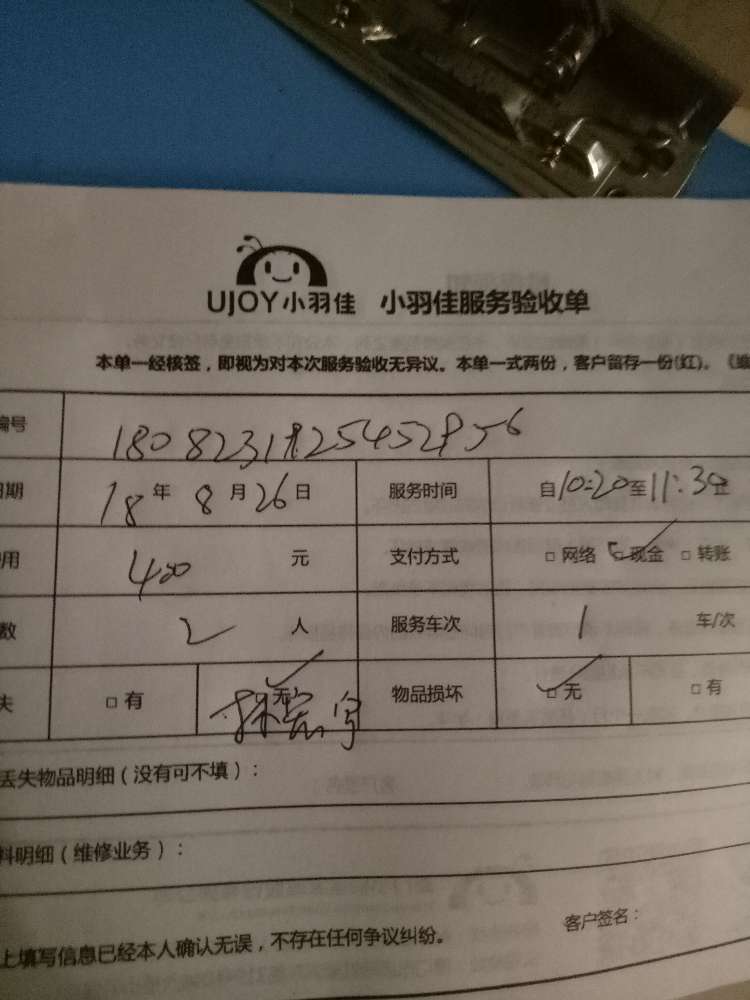 UJOY小羽佳 小羽佳服务验收单
本单一经核签，即视为对本次服务验收无异议。本单一式两份，客户留存一份(红)。
编号
日期 18年8月26日 服务时间 自10:20至11:30止
用 400元 支付方式 □网络 □现金 □转账
数 2人 服务车次 1 车/次
失 □有 无 物品损坏 □无 □有
丢失物品明细（没有可不填）：
料明细（维修业务）：
上填写信息已经本人确认无误，不存在任何争议纠纷。 客户签名：